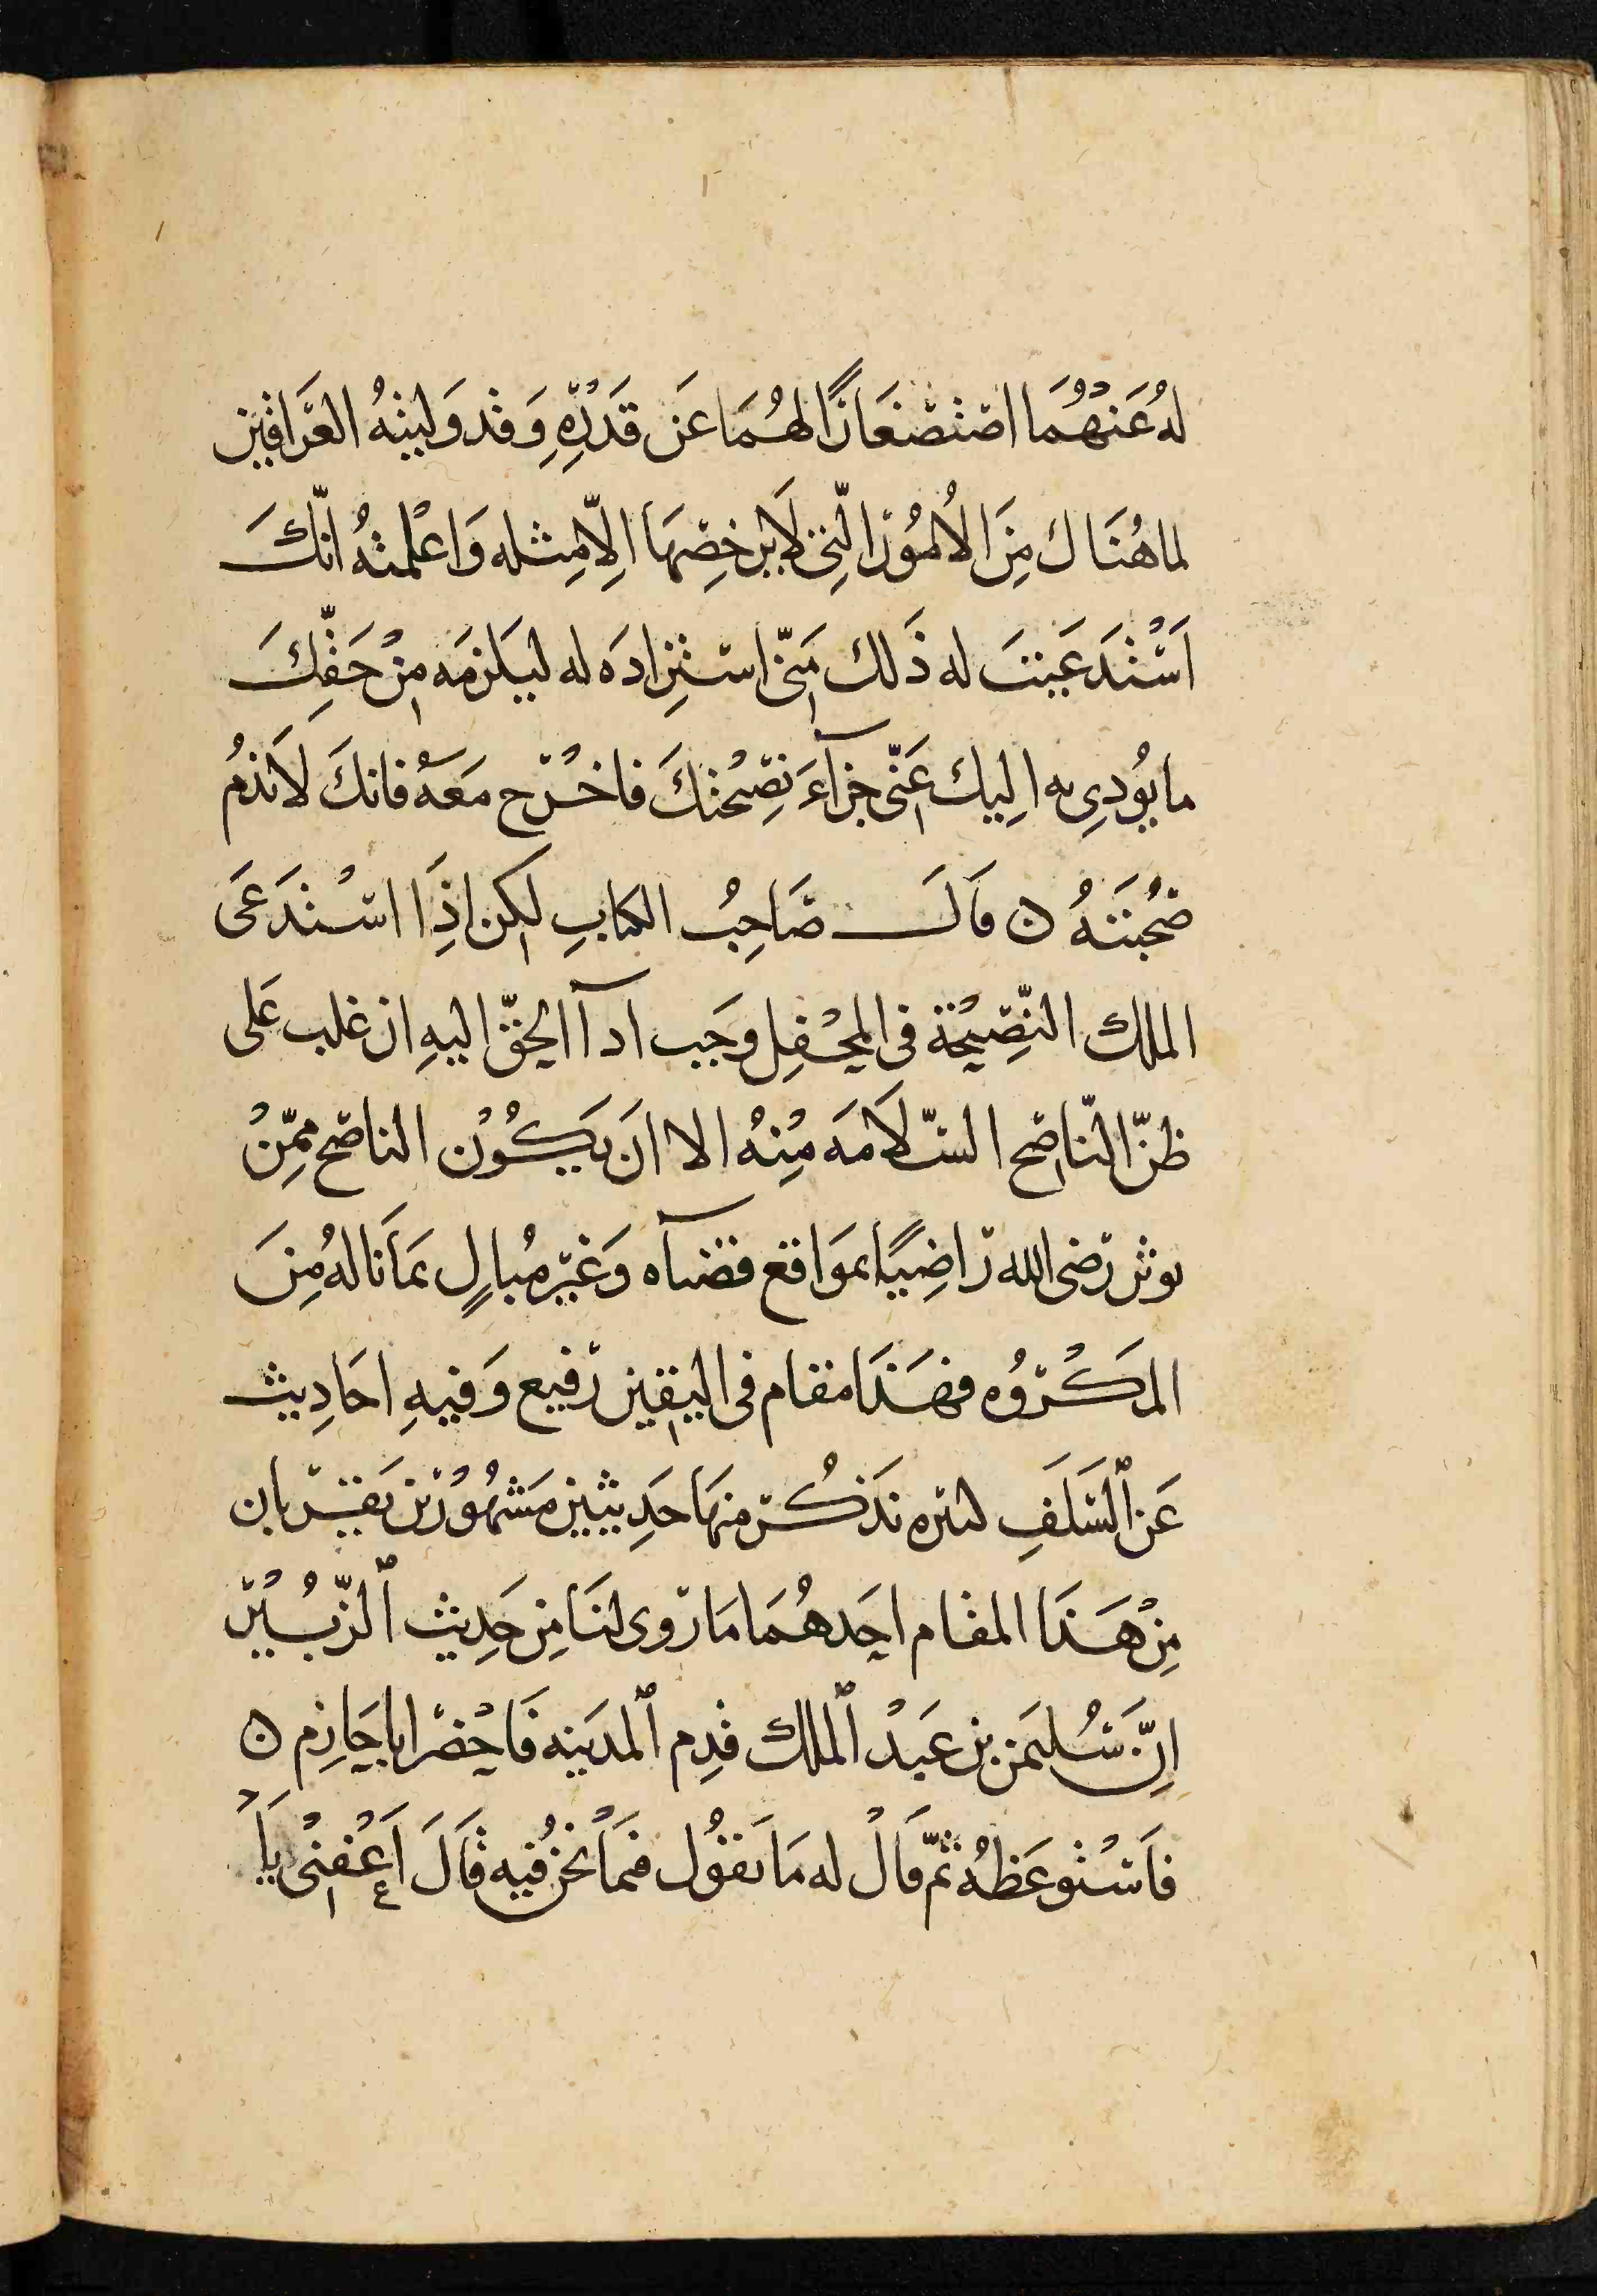 لهُ عَنهُمَا اصتصغَارًا لهُمَا عَن قَدْرِهِ وَقد وَليتهُ العرَاقين
لما هُنَاك مِنَ الاُمُور الّتي لَا يرخصهَا اِلاّ مِثله وَاعْلمتهُ انّكَ
اَسْتَدعَيتَ له ذَلك مِنّي استزادَه له ليَلزمَه مِنْ حَقّكَ
ما يُودِي به اِليك عَنّي جزآءَ نصِيْحتكَ فاخْرج مَعَهُ فانكَ لَا تذمُ
صُحْبَتهُ ن قَالَ صَاحِبُ الكتابِ لكن اِذَا اسْتَدعَى
الملك النّصِيْحة في المحْفِل وَجب ادآ الحَقّ اليهِ ان غلب عَلى
ظنّ النّاصح السّلَامَه مِنْهُ الا ان يَكُوْن الناصح ممّنْ
يوثر رضى الله رَاضِيًا بموَاقع قضآه وَغيْر مُبالٍ بمَا نَالهُ مِنَ
المكْروُه فهَذَا مقام في اليقين رفيع وَفيهِ احَادِيث
عَن السَّلَفِ كثيره نَذكُر منهَا حَدِيثين مَشهُوْرين يَقترّبان
مِنْ هَذَا المقام احَدهُمَا مَا رَوى لنَا مِن حَدِيث الزّبُيْر
اِنَّ سُليمَن بن عَبْد الملك قدِم المدَينه فَاحْضر ابا حَازِم ن
فَاسْتوعَظهُ ثمّ قَالْ له مَا تَقُول فمَا نحْنُ فيه قَالَ اَعْفنِيْ يَا